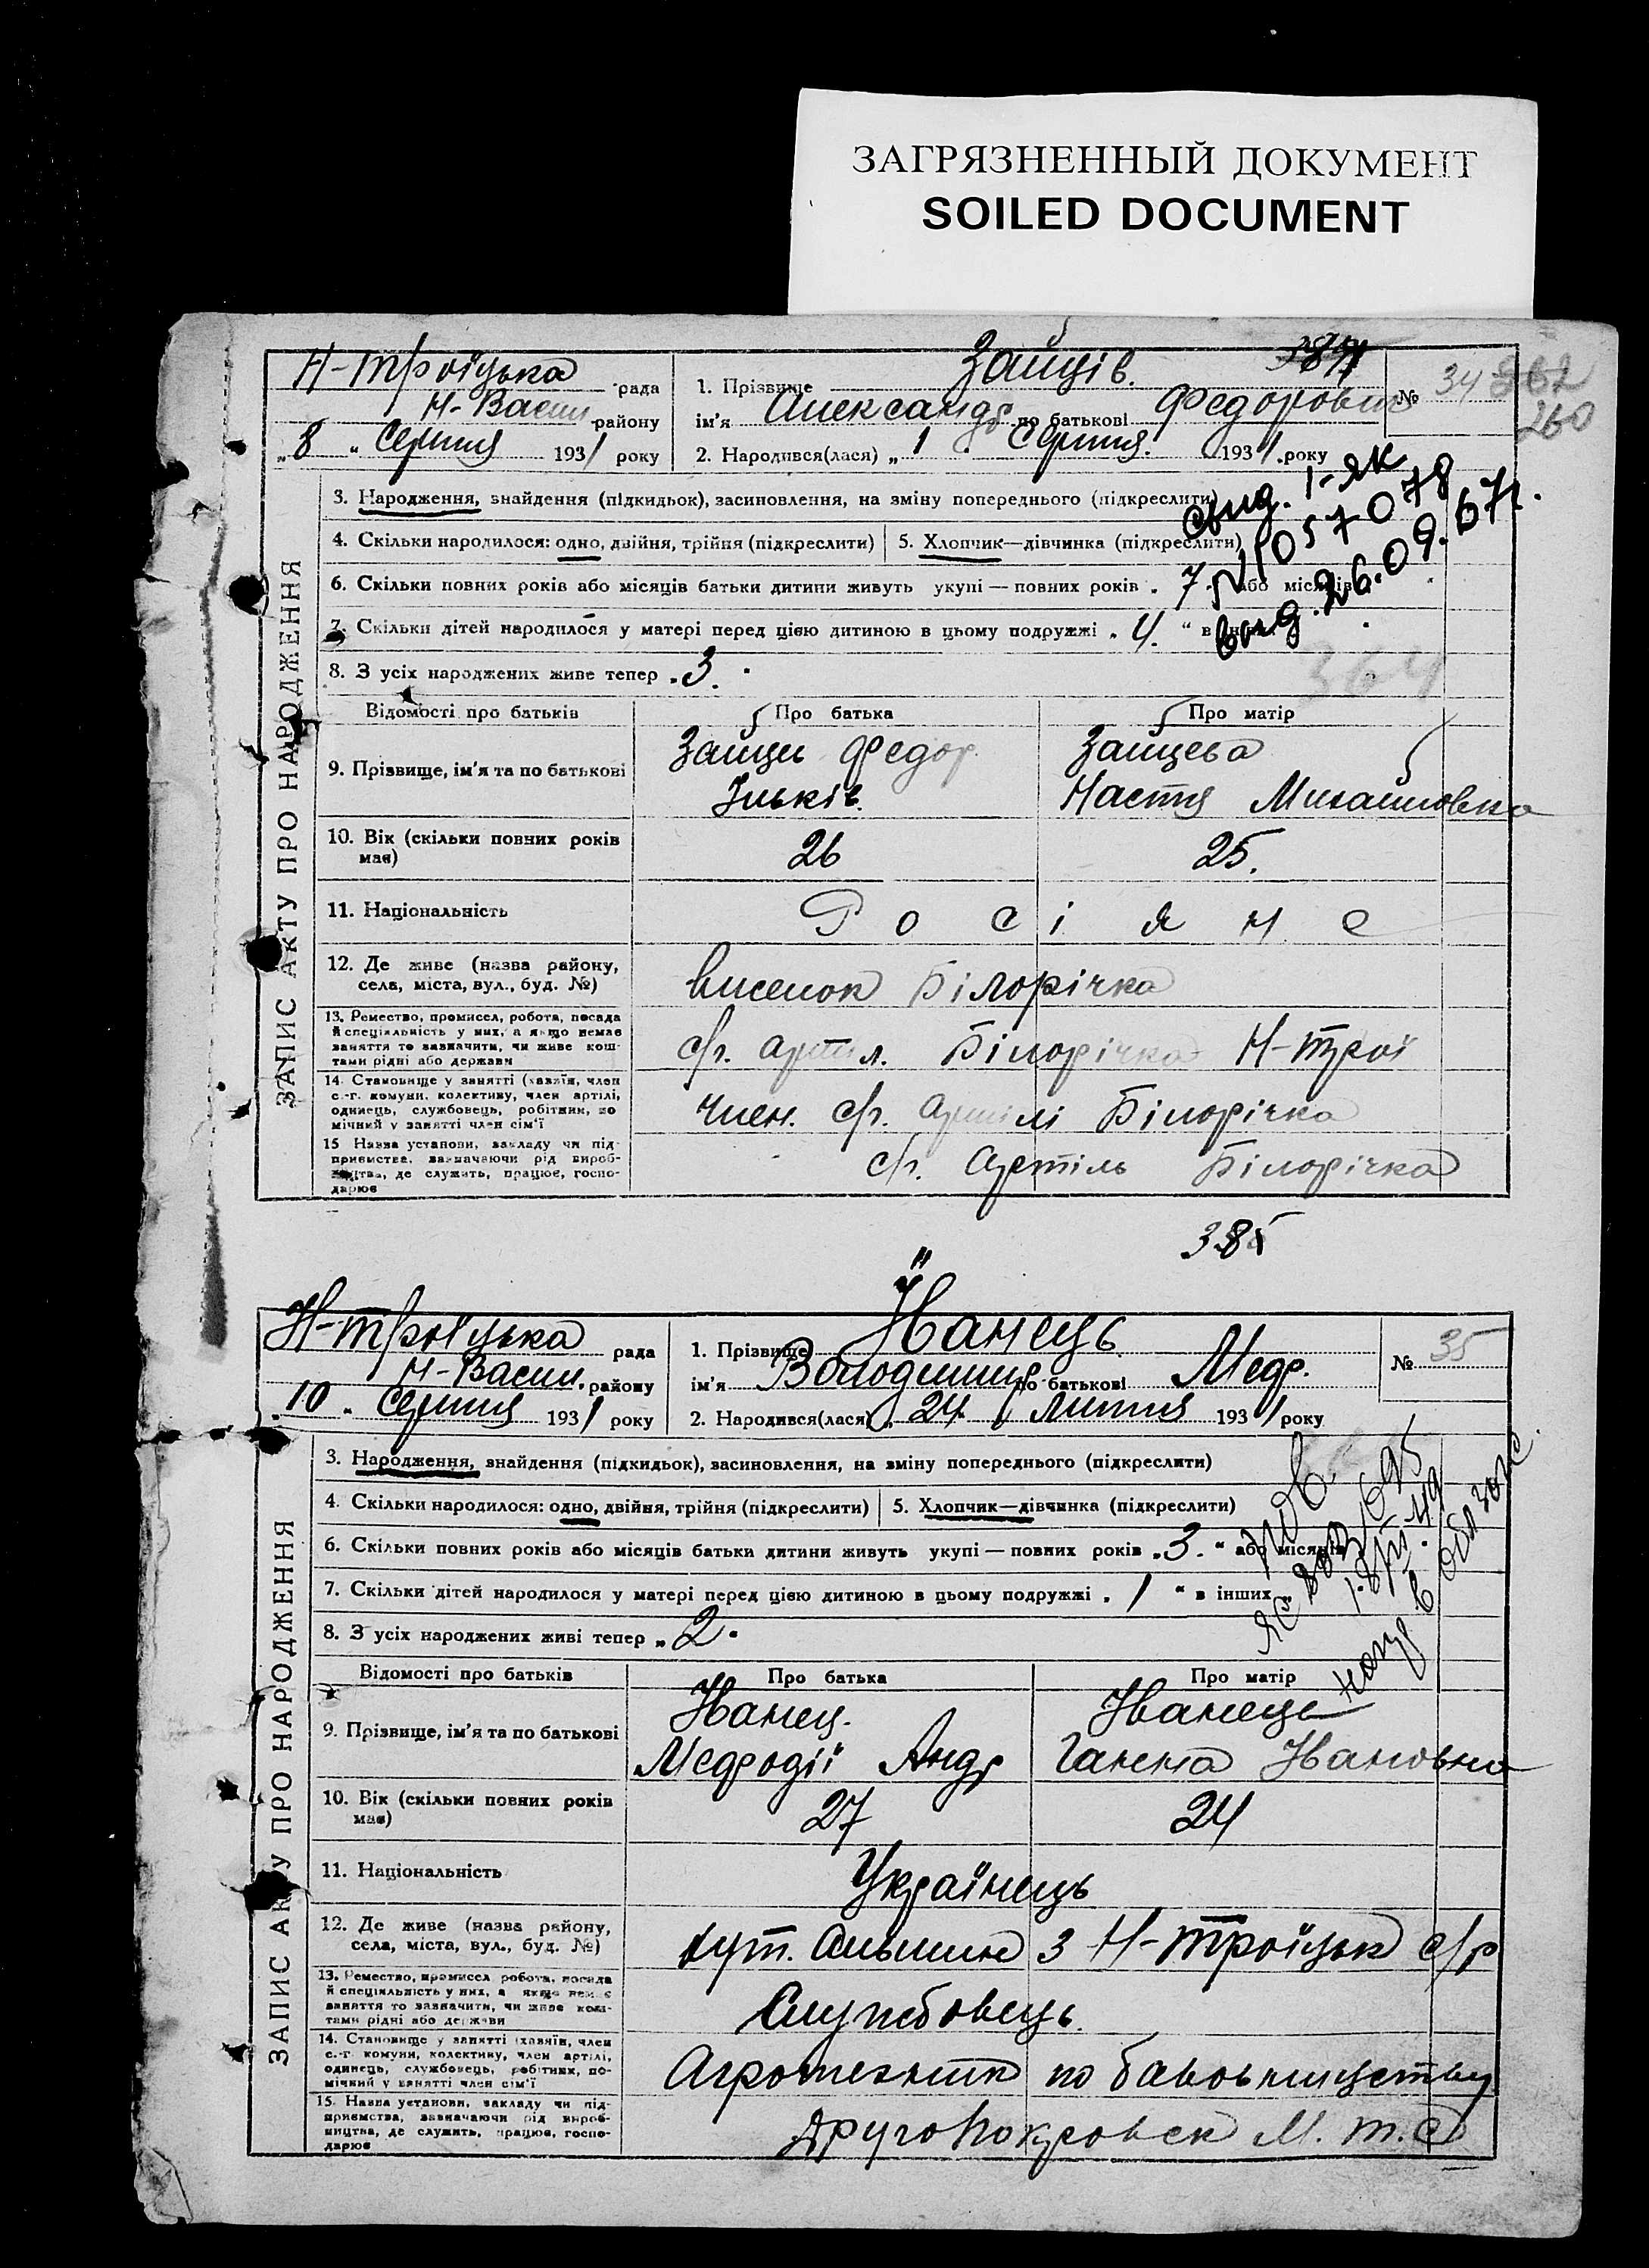 ЗАГРЯЗНЕННЫЙ ДОКУМЕНТ
SOILED DOCUMENT
ЗАПИС АКТУ ПРО НАРОДЖЕННЯ
Н-Троїцька рада
Н-Васил району
„8“ Серпня 1931 року
1. Прізвище Зайців.
ім'я Александр по батькові Федорович
2. Народився(лася) „1“ Серпня. 1931 року
№ 34
260
3. Народження, знайдення (підкидьок), засиновлення, на зміну попереднього (підкреслити)
4. Скільки народилося: одно, двійня, трійня (підкреслити)
5. Хлопчик—дівчинка (підкреслити)
6. Скільки повних років або місяців батьки дитини живуть укупі — повних років 7. або місяців
7. Скільки дітей народилося у матері перед цією дитиною в цьому подружжі „4.“ в
8. З усіх народжених живе тепер „3.
свид. I-ЯК
№ 057078
выд. 26.09.67г.
364
Відомості про батьків Про батька Про матір
9. Прізвище, ім'я та по батькові
Зайцев Федор
Ільків.
Зайцева
Настя Михайловна
10. Вік (скільки повних років має) 26 25.
11. Національність Росіяне
12. Де живе (назва району, села, міста, вул., буд. №) виселок Білорічка
13. Ремество, промисел, робота, посада й спеціяльність у них, а якщо немає заняття то зазначити, чи живе коштами рідні або держави с/г. артіл. Білорічка Н-трої
14. Становище у занятті (хазяїн, член с.-г. комуни, колективу, член артілі, одинець, службовець, робітник, помічний у занятті член сім'ї член. с/г. артілі Білорічка
15 Назва установи, закладу чи підприємства, зазначаючи рід виробництва, де служить, працює, господарює с/г. Артіль Білорічка
385
ЗАПИС АКТУ ПРО НАРОДЖЕННЯ
Н-троїцька рада
Н-Васил. району
„10“ Серпня 1931 року
1. Прізвище Іванець
ім'я Володимир по батькові Медр.
2. Народився(лася) „24“ Липня 1931 року
№ 35
3. Народження, знайдення (підкидьок), засиновлення, на зміну попереднього (підкреслити)
4. Скільки народилося: одно, двійня, трійня (підкреслити)
5. Хлопчик—дівчинка (підкреслити)
6. Скільки повних років або місяців батьки дитини живуть укупі — повних років „3.“ або місяців
7. Скільки дітей народилося у матері перед цією дитиною в цьому подружжі „1“ в інших
8. З усіх народжених живі тепер „2.
Відомості про батьків Про батька Про матір
9. Прізвище, ім'я та по батькові
Іванец.
Андр
Іванець
Ганна Івановна
10. Вік (скільки повних років має) 27 24
11. Національність Українець
12. Де живе (назва району, села, міста, вул., буд. №) хут. з Н-троїцьк с/р
13. Ремество, промисел робота, посада й спеціяльність у них, а якщо немає заняття то зазначити, чи живе коштами рідні або держави Службовець.
14. Становище у занятті (хазяїн, член с.-г. комуни, колективу, член артілі, одинець, службовець, робітник, помічний у занятті член сім'ї Агротехник по бавовництву
15. Назва установи, закладу чи підприємства, зазначаючи рід виробництва, де служить, працює, господарює ДругоПокровск М.Т.С